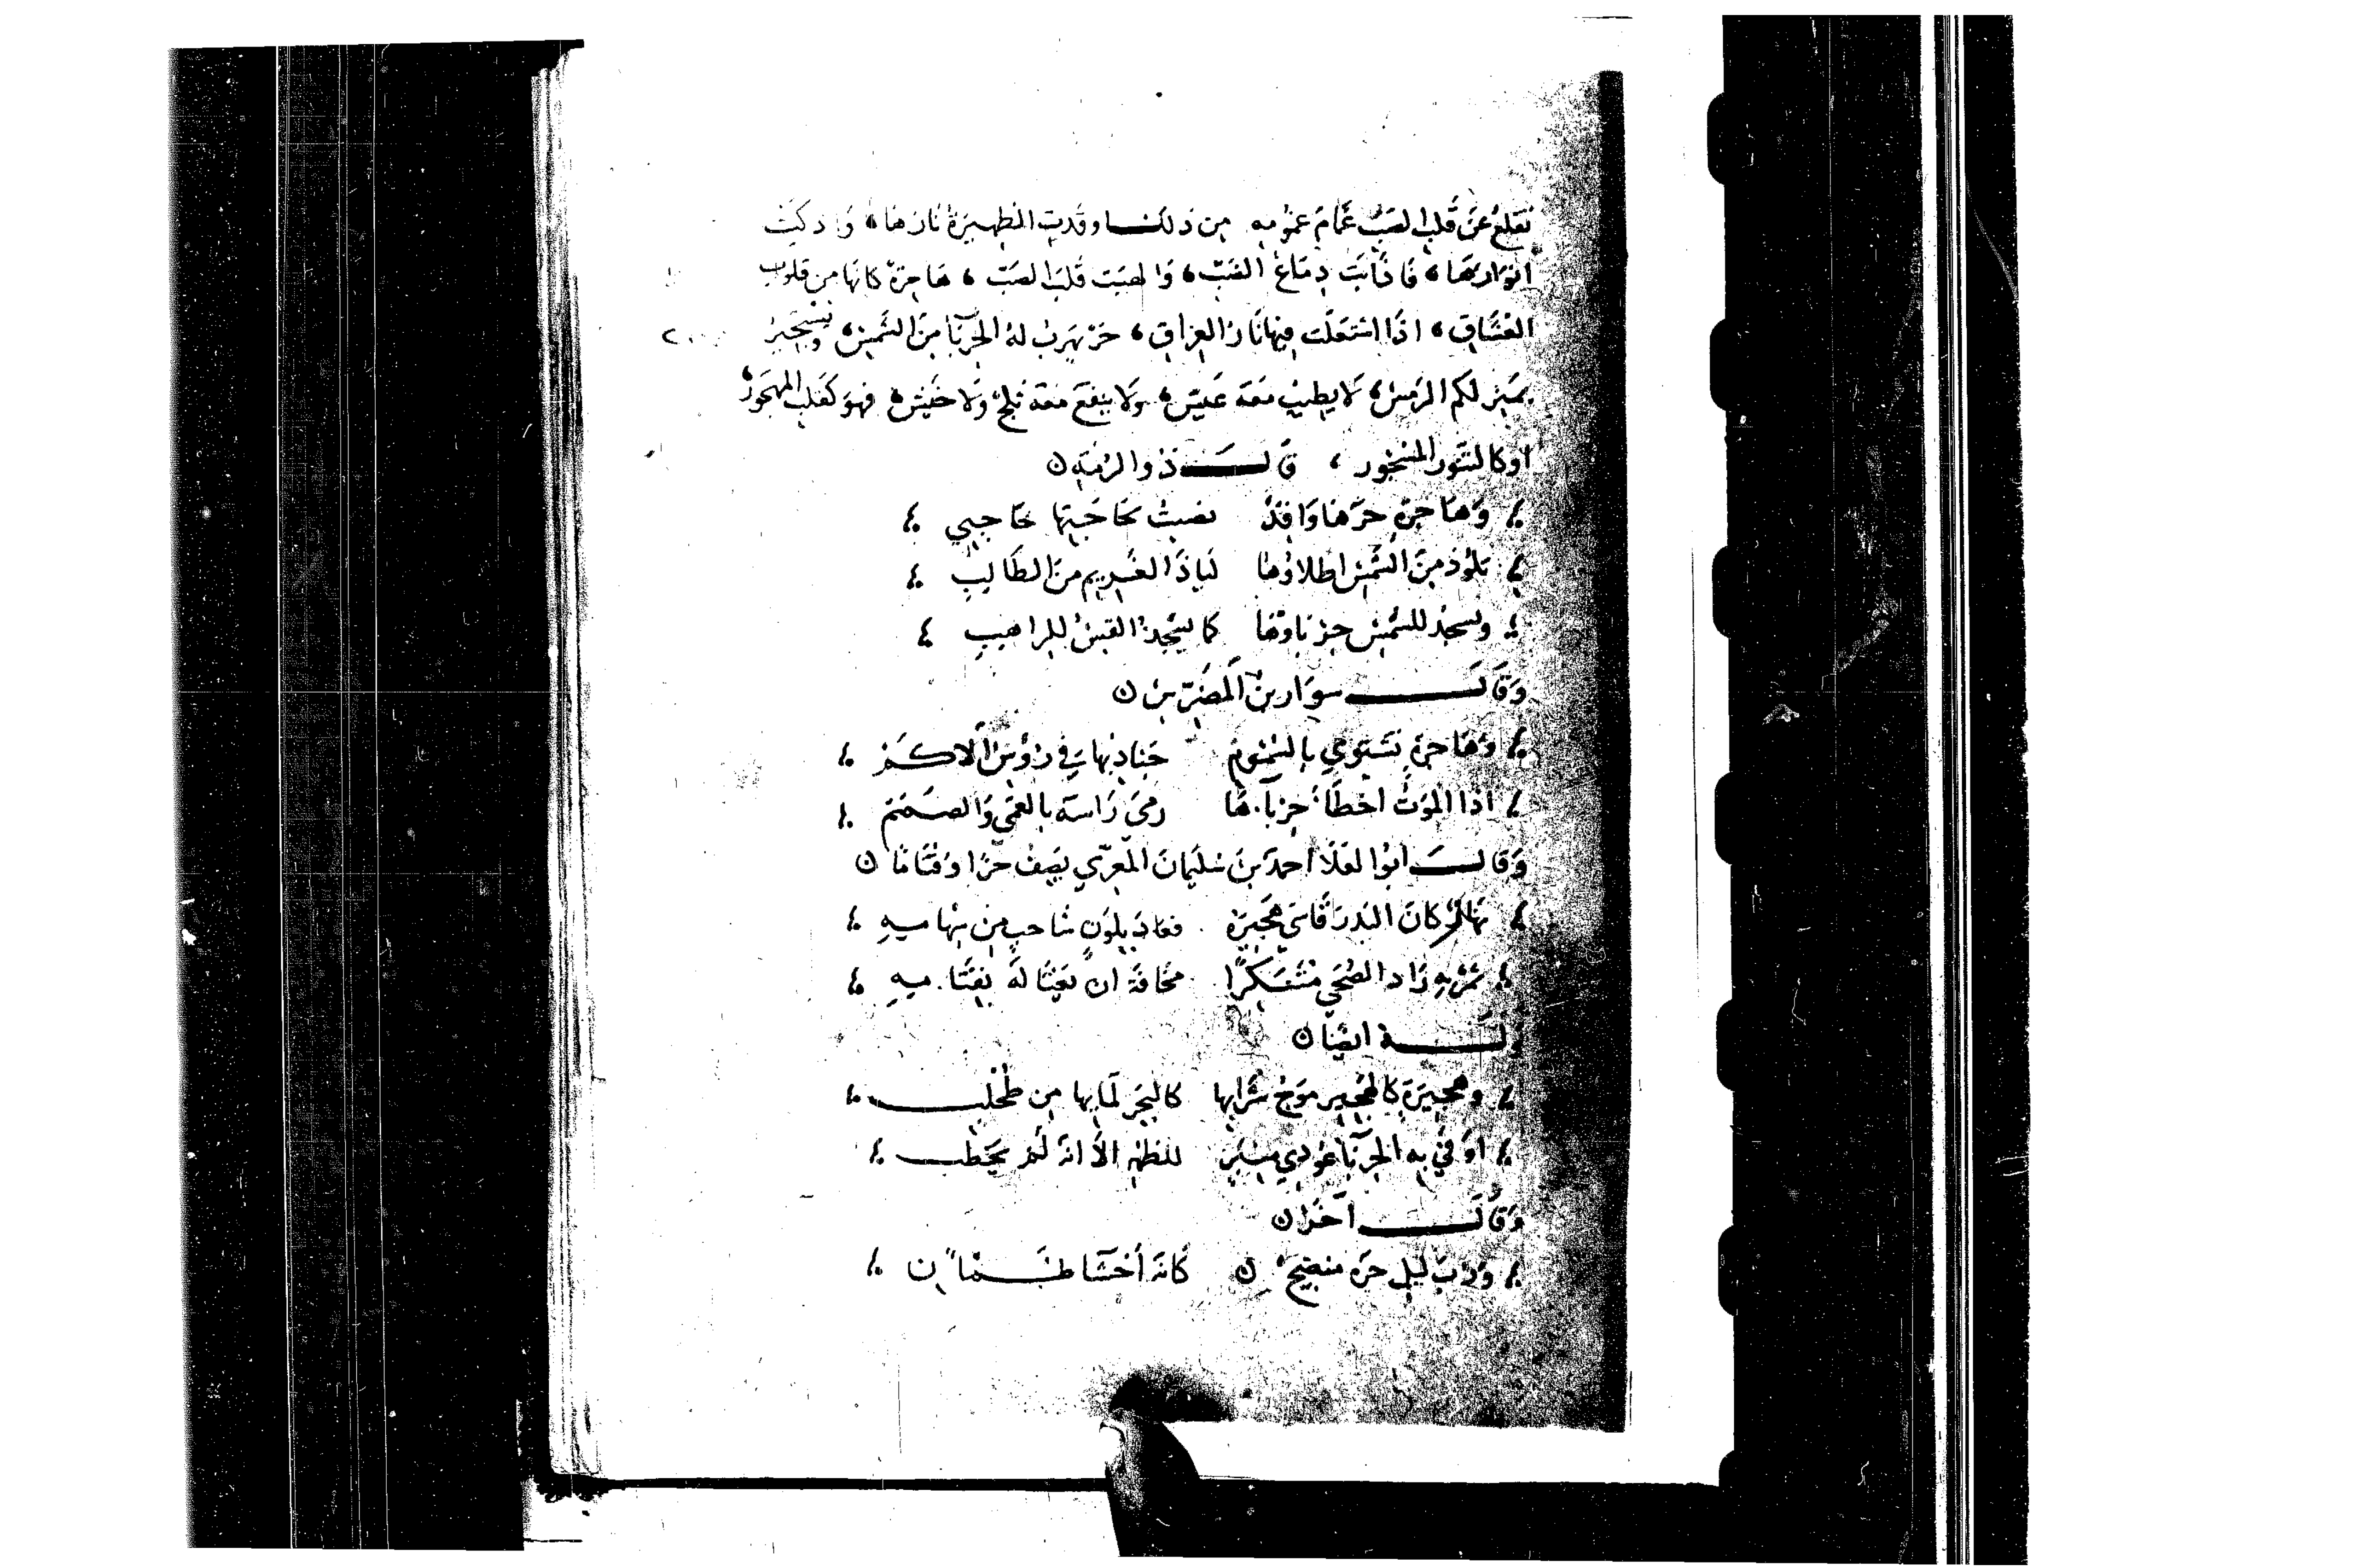 تقلع عن قلب الصب غمام غمومه من ذلك اوقدت الظهيرة نارها، واذكت
اوارها، فاذابت دماغ الضب، والهبت قلب الصب، هاجرة كانها من قلوب
العشاق، اذا اشتعلت فيها نار الفراق، حر يهرب له الحربا من الشمس، ويستجير
لا يطيب معه عيش، ولا ينفع معه ثلج ولا خيش، فهو كقلب المهجور
او كالتنور المسجور، قال ذو الرمة
وهاجرة حرها واقد نصبت لحاجبها حاجبي
تلوذ من الشمس اطلاؤها لياذ الغريم من الطالب
وتسجد للشمس حرباؤها كما يسجد القس للراهب
وقال سوار بن المضرب
وهاجرة تشتوي بالسموم جنادبها في رؤس الاكم
اذا الموت اخطا حرباءها رمى راسه بالعمى والصمم
وقال ابو العلا احمد بن سليمان المعري يصف حرا وقتاما
كان البدر قاسى هجيره فعاد بلون شاحب من سهامه
زاد الضحى متنكرا مخافة ان يغتاله بقتامه
وله ايضا
وهجيرة كالهجر موج سرابها كالبحر ليس لمايها من طحلب
اوفى به الحربا عودي منبر للظهر الا انه لم يخطب
وقال آخر
ورب ليل حره منضج كانه احشا ظمان